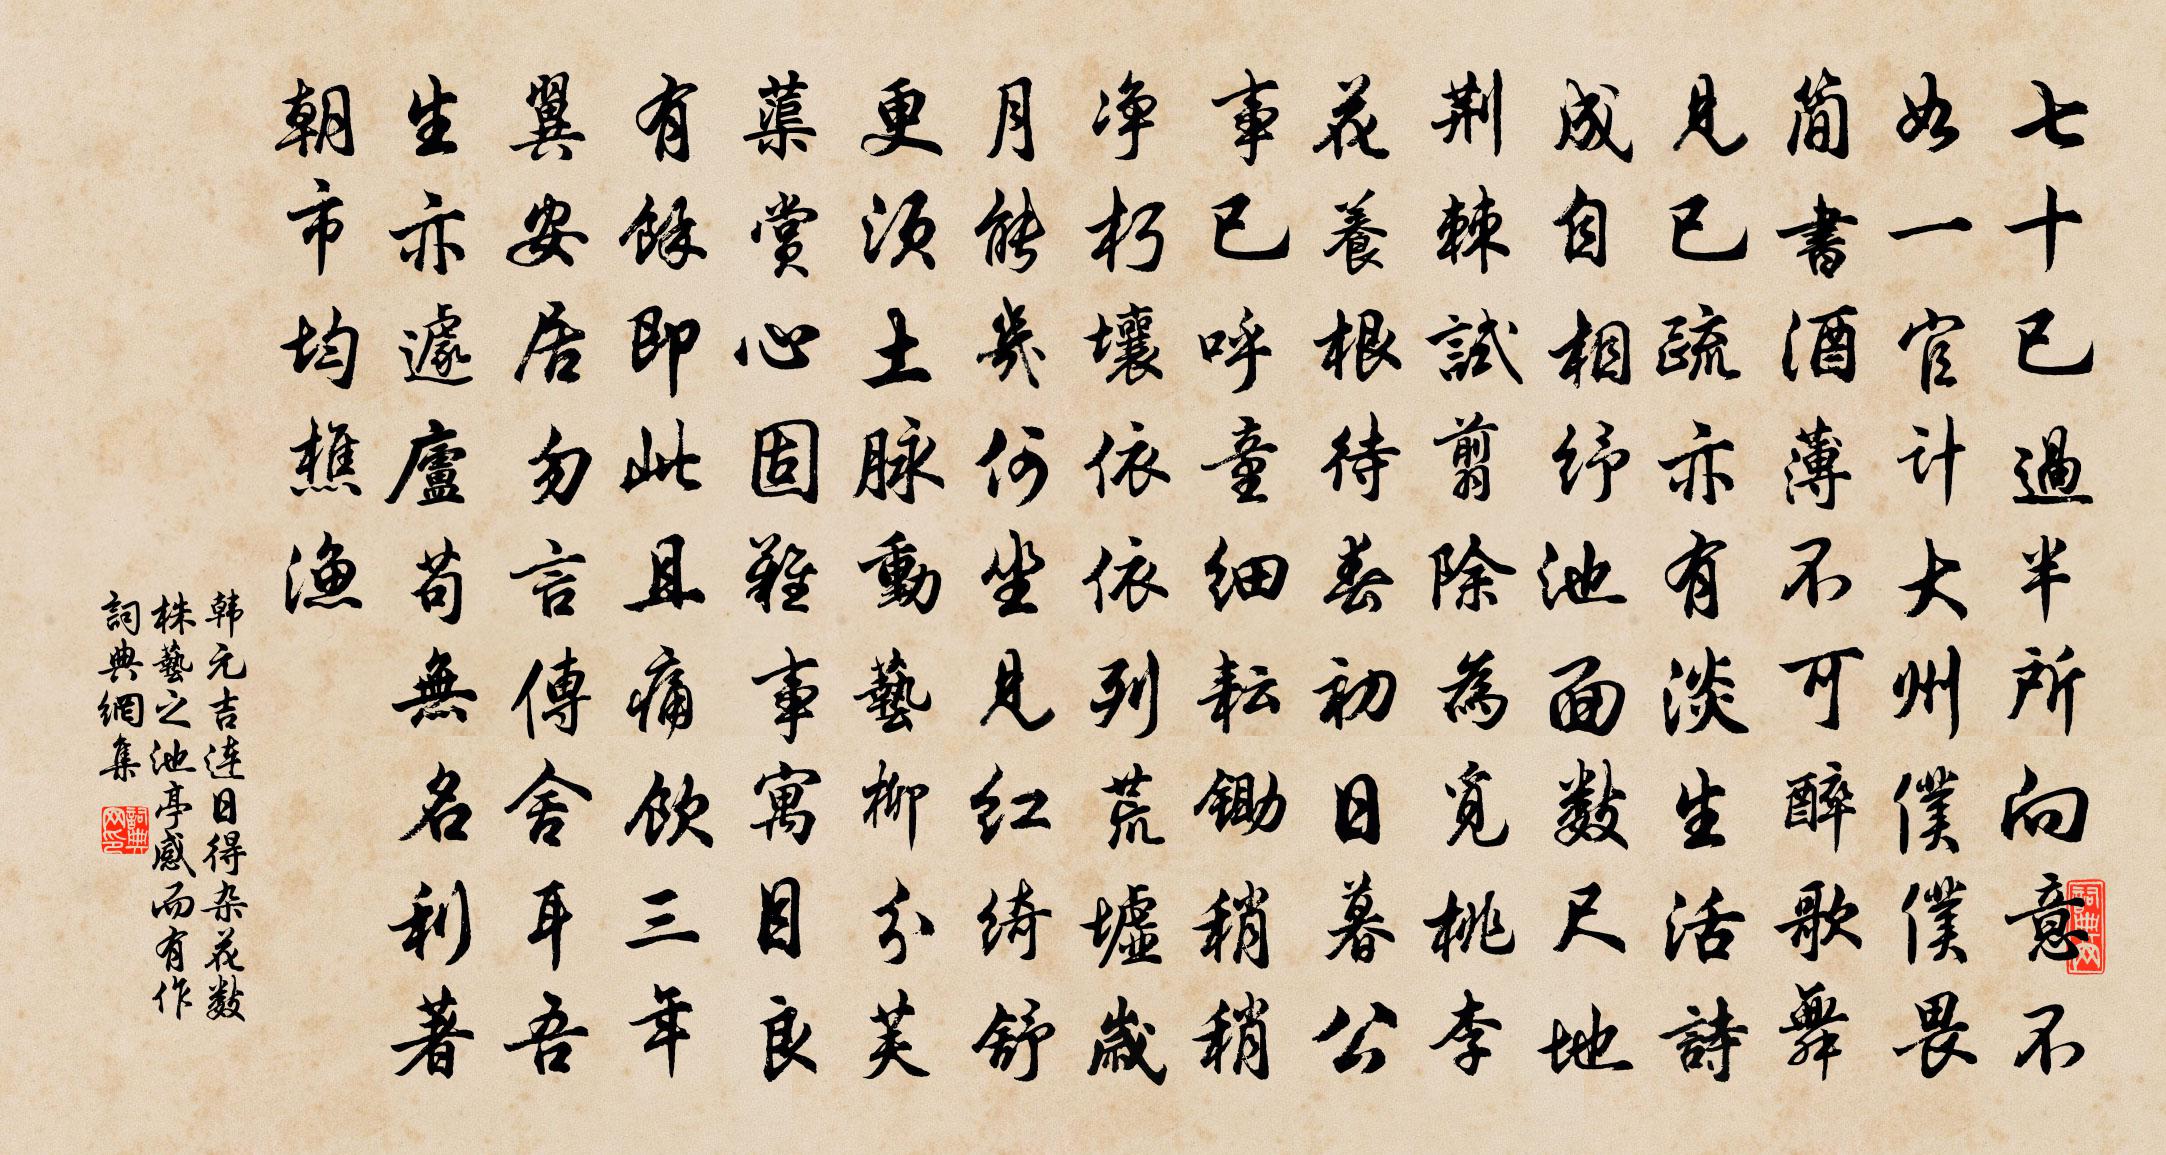 七十已過半所向意不
如一官計大州僕僕畏
简書酒薄不可醉歌舞
見已疏亦有淡生活詩
成自相紓池面數尺地
荆棘試剪除為覓桃李
花養根待春初日暮公
事已呼童细耘鋤稍稍
净朽壤依依列荒墟歲
月能幾何坐見红綺舒
更須土脉動藝柳分芙
蕖賞心固難事寓目良
有餘即此且痛飲三年
翼安居勿言傳舍耳吾
生亦遽廬苟無名利著
朝市均樵漁
韩元吉连日得杂花数
株藝之池亭感而有作
詞典網集
詞典网
詞典网印